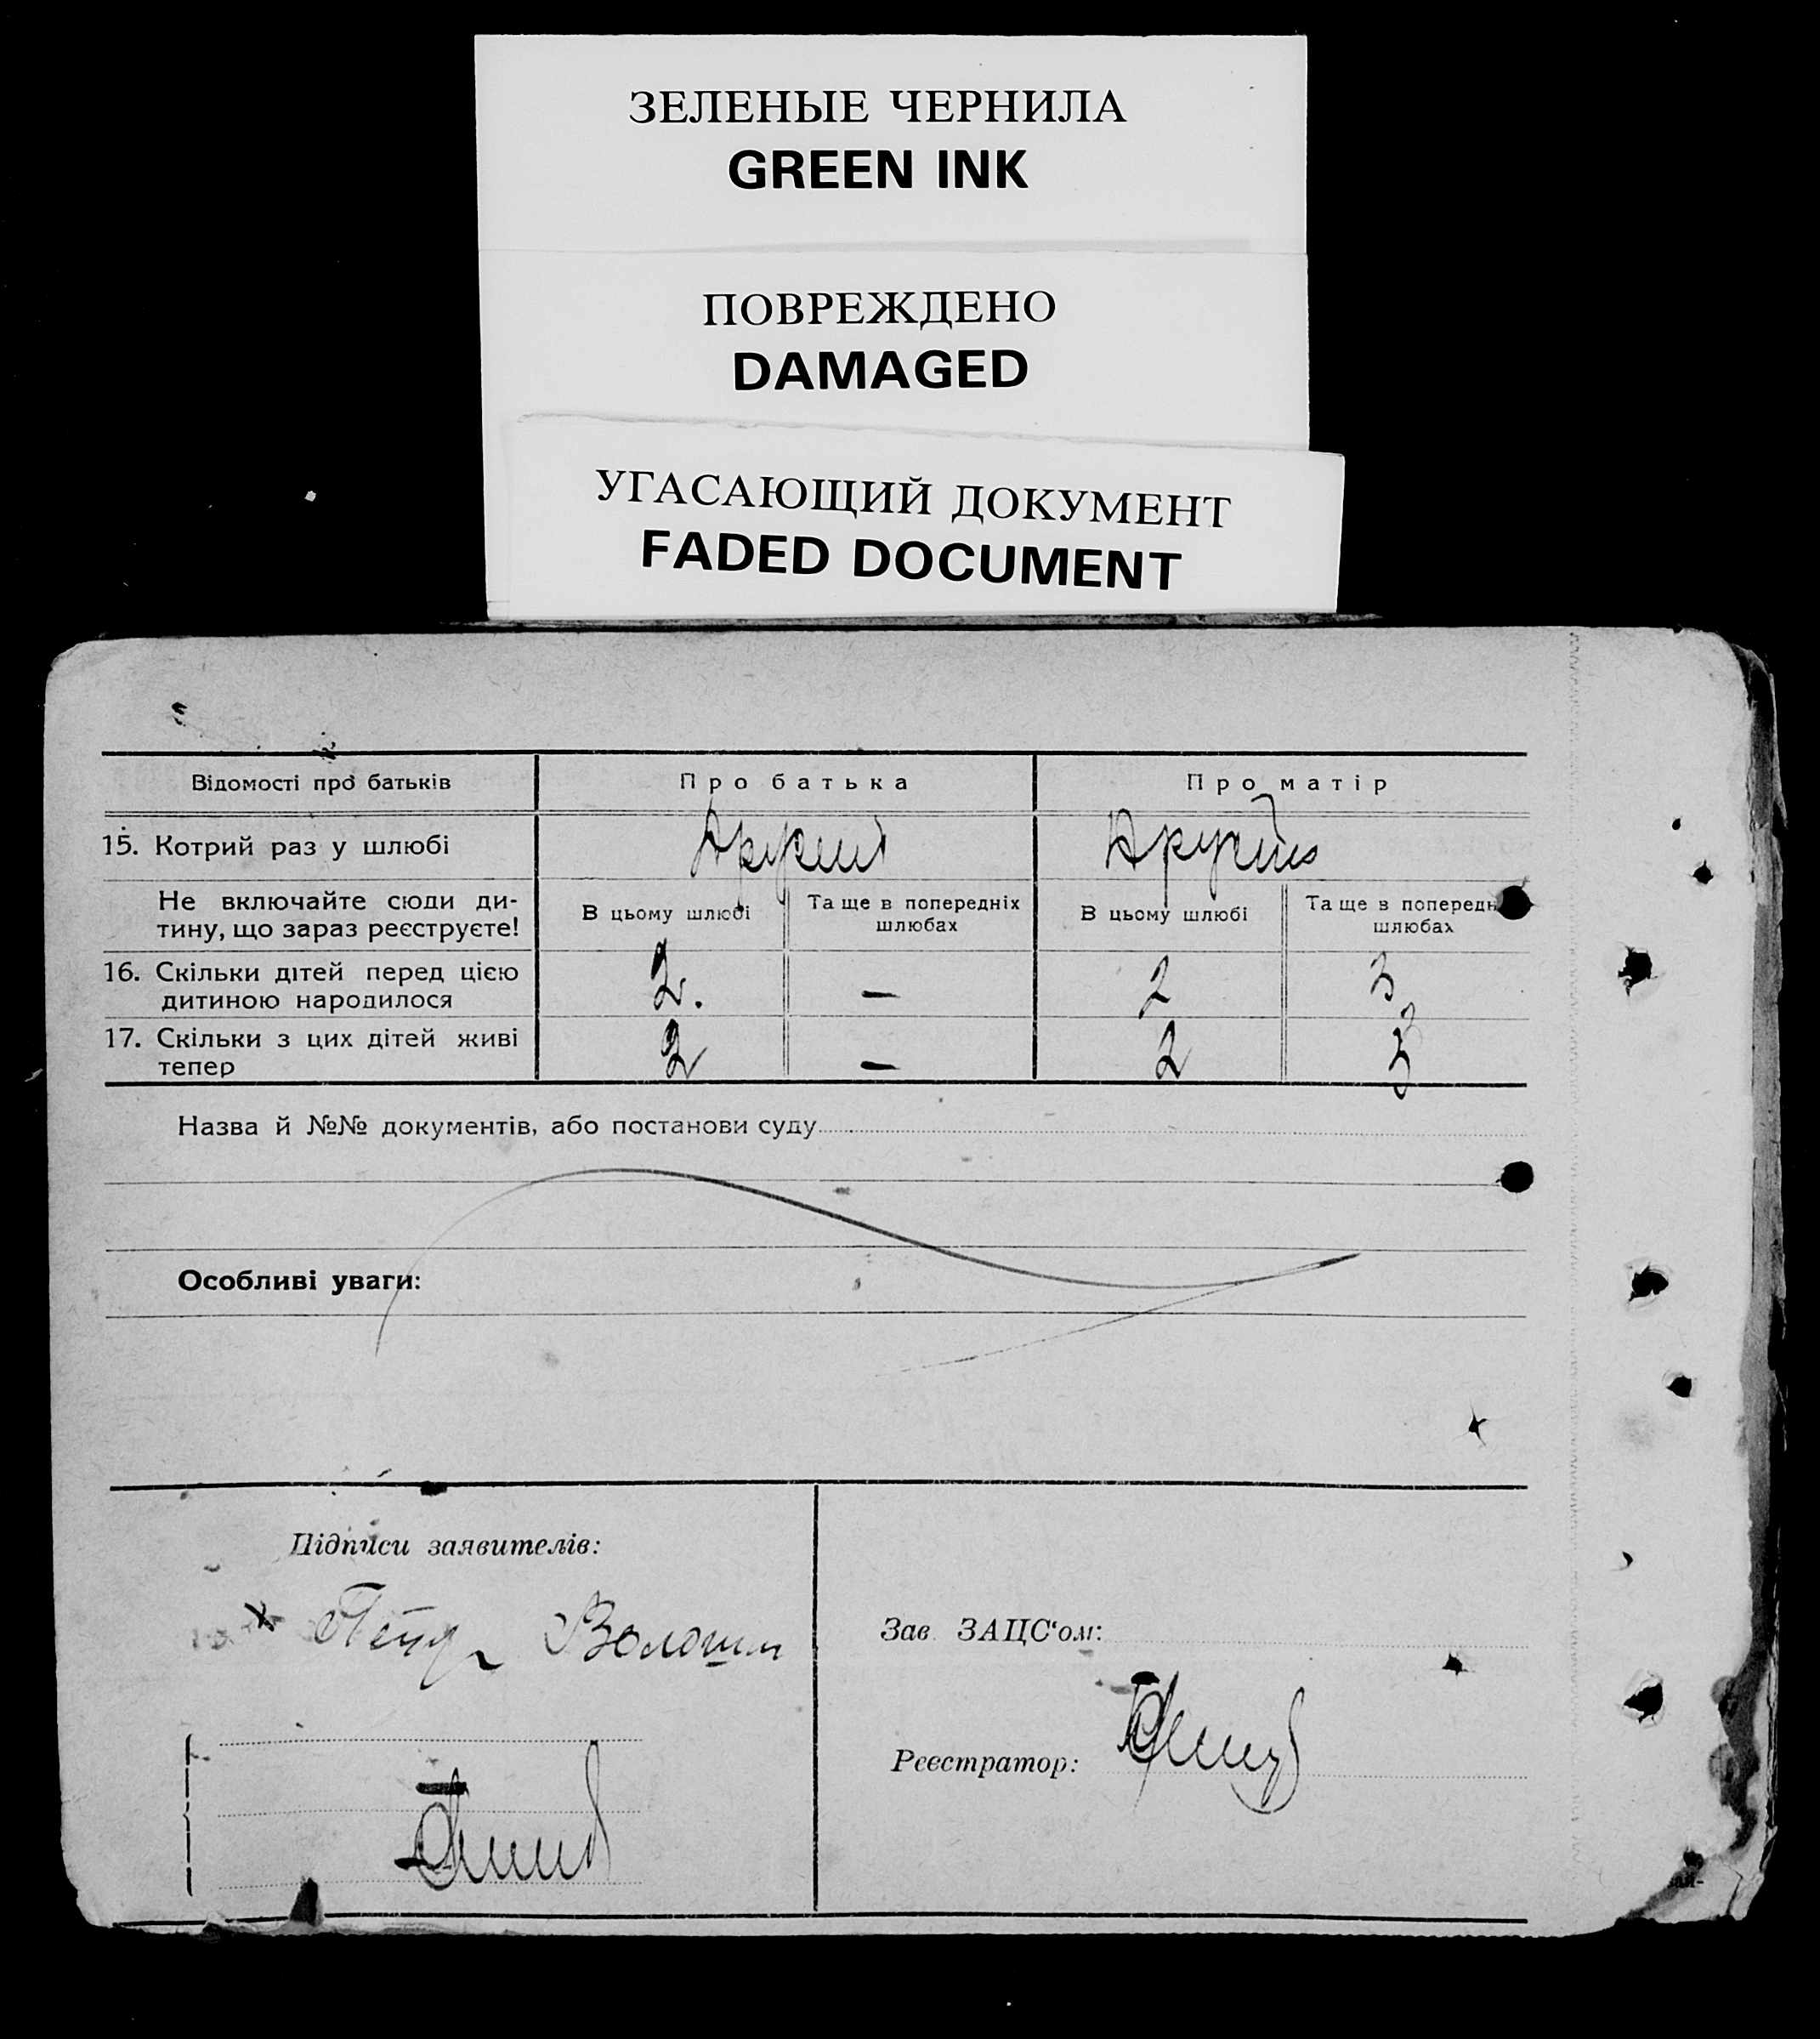 ЗЕЛЕНЫЕ ЧЕРНИЛА
GREEN INK
ПОВРЕЖДЕНО
DAMAGED
УГАСАЮЩИЙ ДОКУМЕНТ
FADED DOCUMENT
Відомості про батьків Про батька Про матір
15. Котрий раз у шлюбі Другий
Не включайте сюди ди-
тину, що зараз реєструєте!
В цьому шлюбі Та ще в попередніх
шлюбах
В цьому шлюбі Та ще в попередн
шлюбах
16. Скільки дітей перед цією
дитиною народилося 2. — 2 3
17. Скільки з цих дітей живі
тепер 2 — 2 3
Назва й №№ документів, або постанови суду
Особливі уваги:
Підписи заявителів:
Петр Волошин
Зав. ЗАЦС‘ом:
Реєстратор: